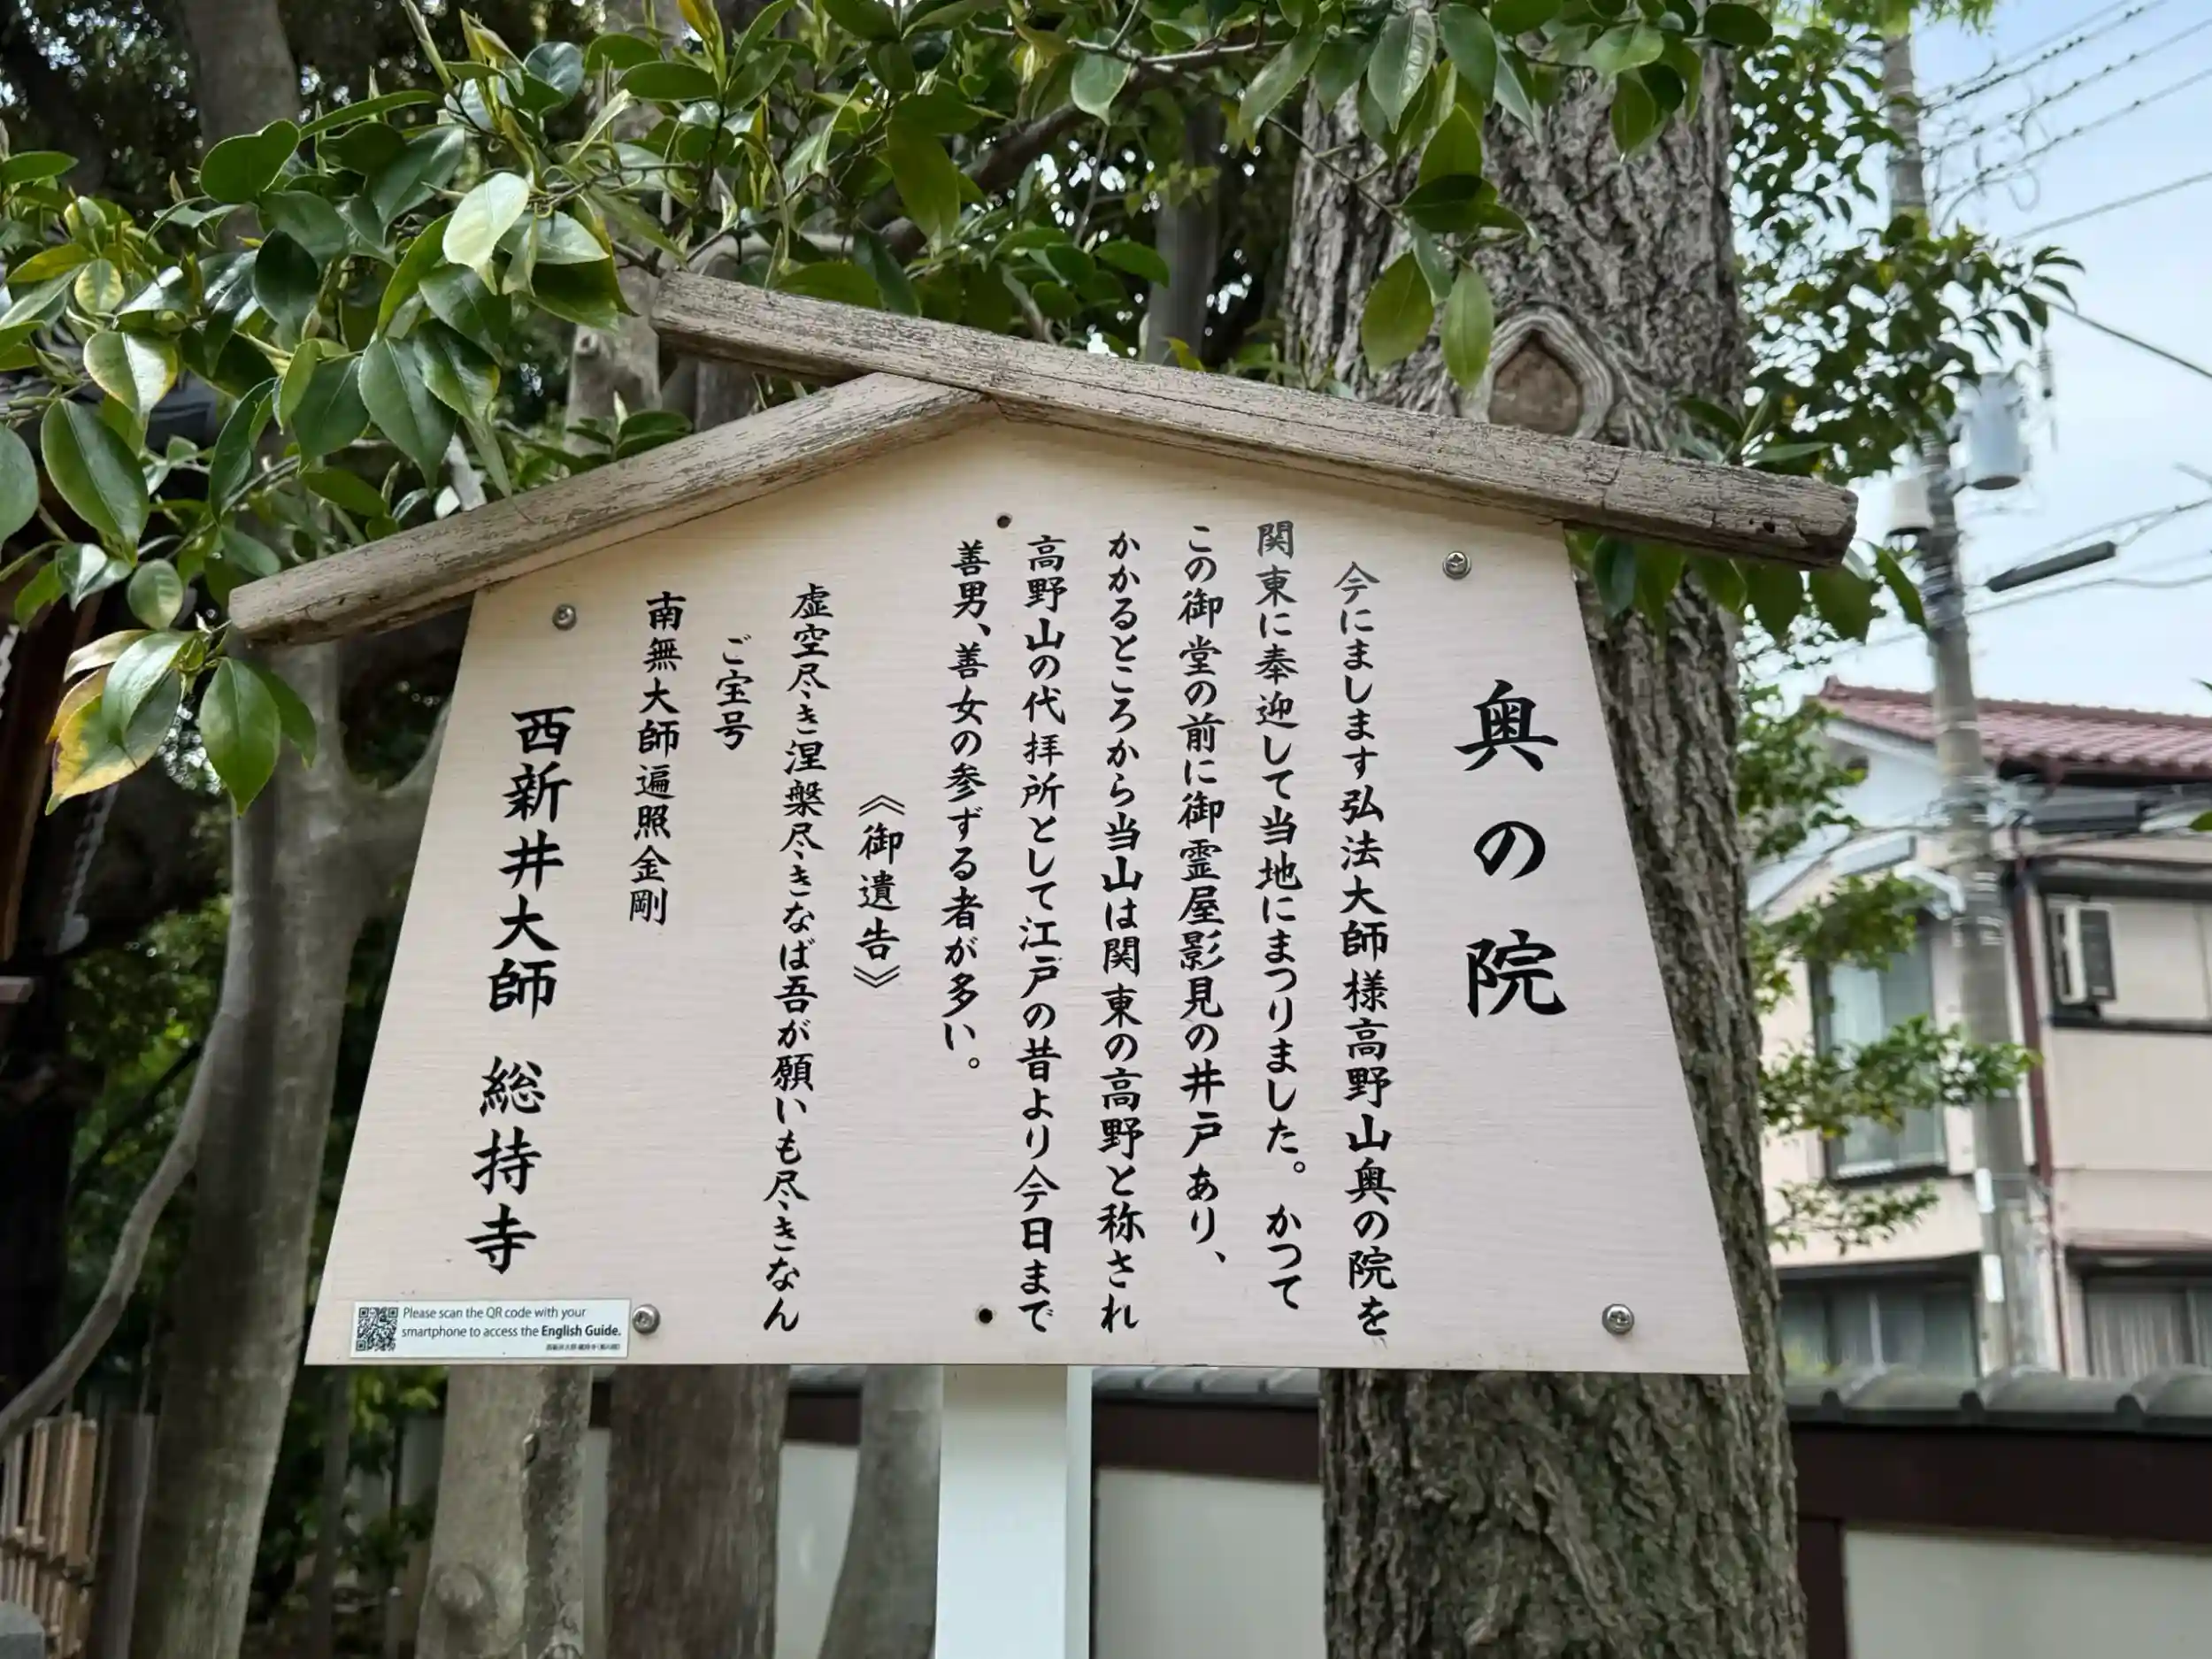 奥の院
今にまします弘法大師様高野山奥の院を
関東に奉迎して当地にまつりました。かつて
この御堂の前に御霊屋影見の井戸あり、
かかるところから当山は関東の高野と称され
高野山の代拝所として江戸の昔より今日まで
善男、善女の参ずる者が多い。
《御遺告》
虚空尽き涅槃尽きなば吾が願いも尽きなん
ご宝号
南無大師遍照金剛
西新井大師 総持寺
Please scan the QR code with your
smartphone to access the English Guide.